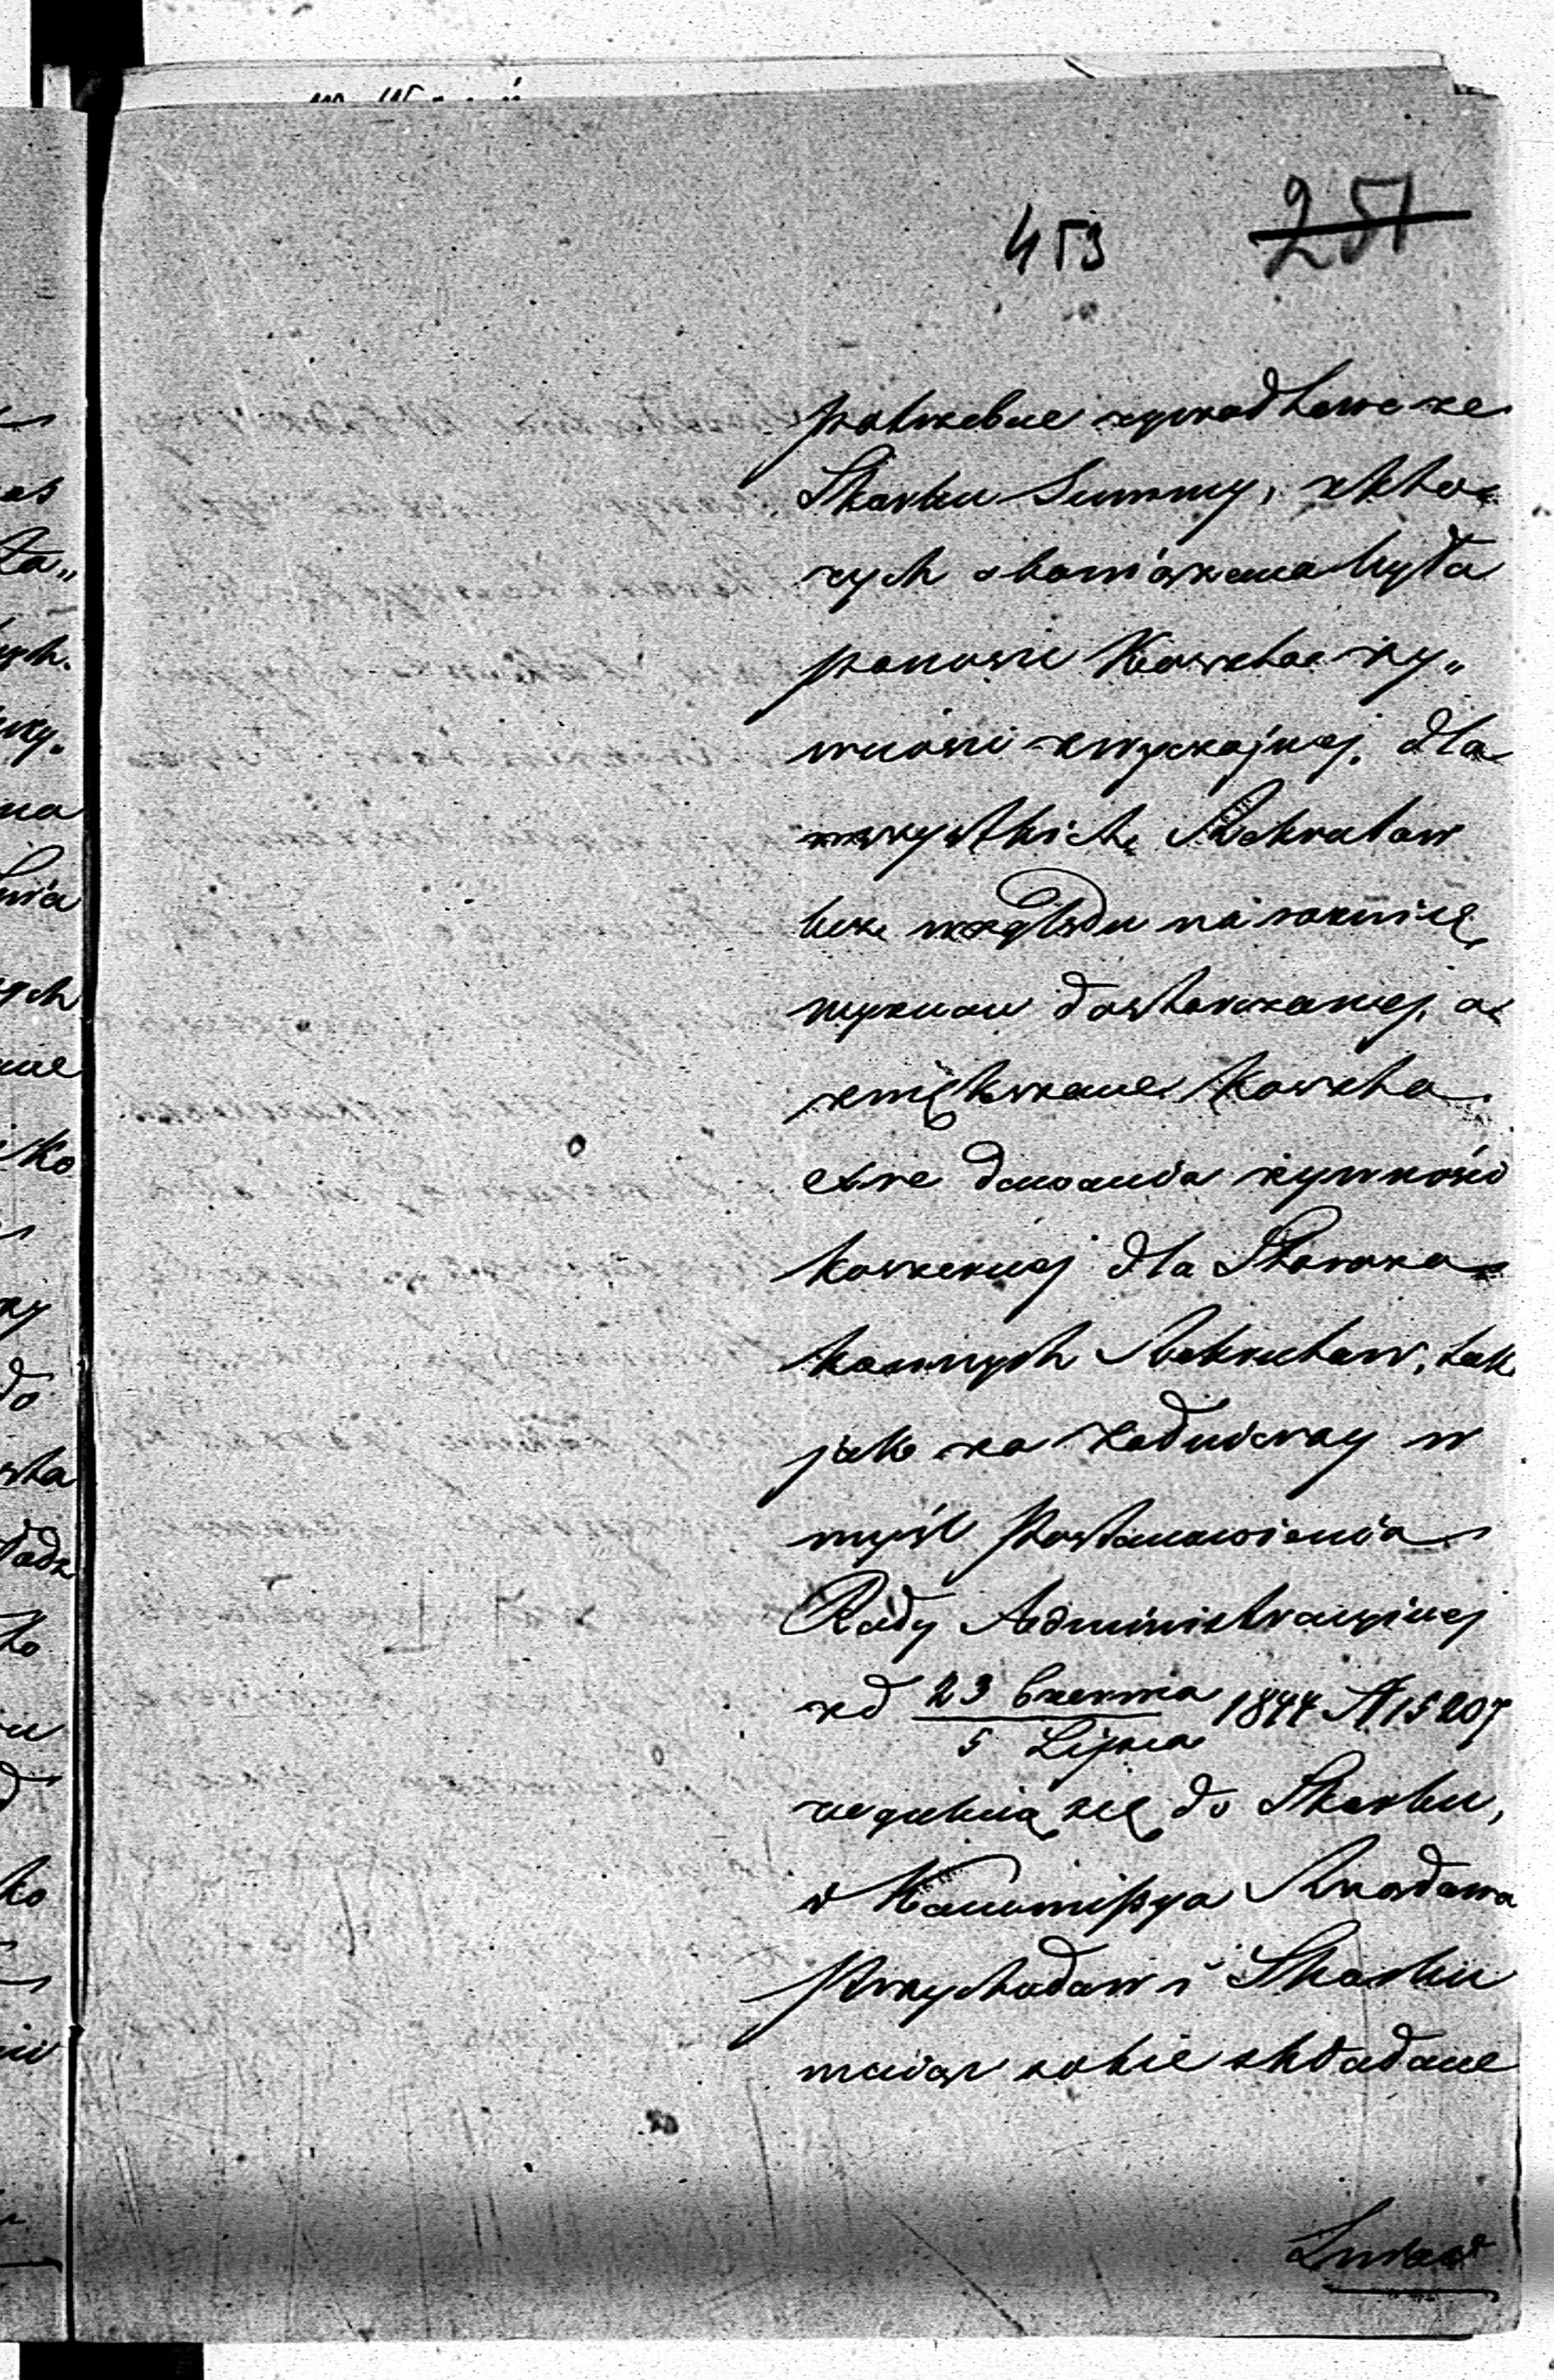 453 251
potrzebne wypadłowe ze
Skarbu Summy, z któ=
rych obowiązana była
ponosić Koszta ży„
wności zwyczajnej dla
wszystkich Rekrutów
bez względu na różnicę
wyznań dostarczanej, a
zwiększane Koszta
dawania żywności
koszernej dla Staroza=
konnych Rekrutów, tak
jak za Podwody w
myśl Postanowienia
Rady Administracyjnej
z d 23 Czerwca / 5 Lipca 1844 N 15207
regulują się do Skarbu,
a Kommissya Rządowa
Przychodów i Skarbu
mając sobie składane